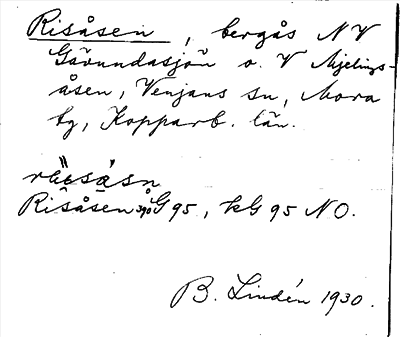 Risåsen, bergås NV
Gävundasjön o. V Mjelings-
åsen, Venjans sn, Mora
tg, Kopparb. län.
Risåsen 390 G 95, kG 95 NO.
B. Lindén 1930.